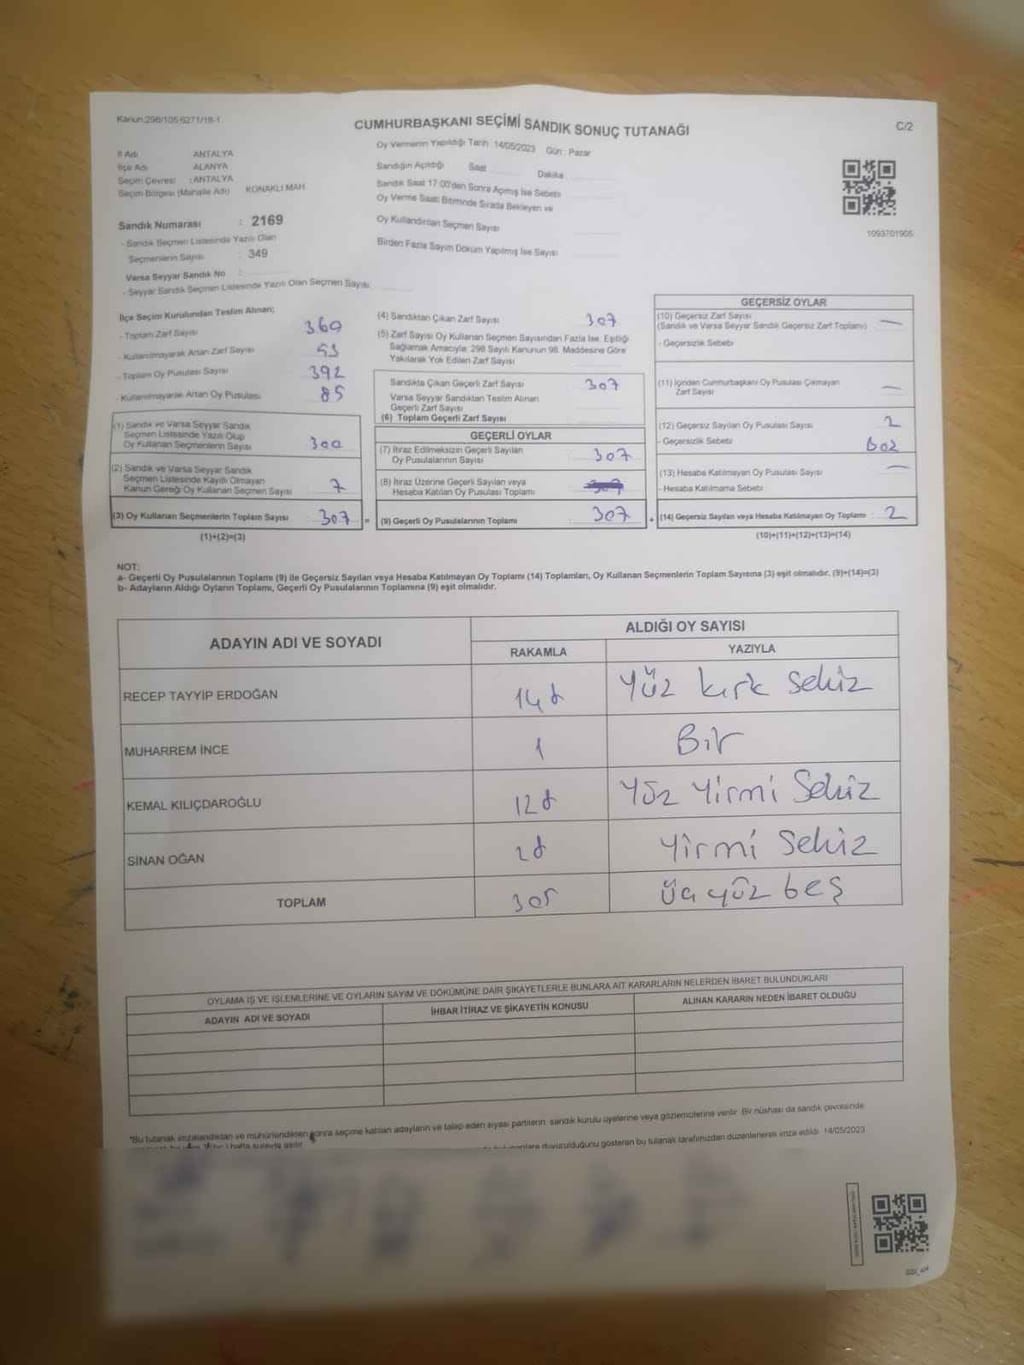 Kanun:298/105 6271/18-1
CUMHURBAŞKANI SEÇİMİ SANDIK SONUÇ TUTANAĞI
C/2
İl Adı ANTALYA
İlçe Adı ALANYA
Seçim Çevresi : ANTALYA
Seçim Bölgesi (Mahalle Adı) KONAKLI MAH.
Sandık Numarası : 2169
- Sandık Seçmen Listesinde Yazılı Olan
Seçmenlerin Sayısı : 349
Varsa Seyyar Sandık No :
- Seyyar Sandık Seçmen Listesinde Yazılı Olan Seçmen Sayısı:
Oy Vermenin Yapıldığı Tarih :14/05/2023 Gün : Pazar
Sandığın Açıldığı Saat Dakika
Sandık Saat 17:00'den Sonra Açılmış İse Sebebi
Oy Verme Saati Bitiminde Sırada Bekleyen ve
Oy Kullandırılan Seçmen Sayısı
Birden Fazla Sayım Döküm Yapılmış İse Sayısı
1093701905
İlçe Seçim Kurulundan Teslim Alınan;
- Toplam Zarf Sayısı 360
- Kullanılmayarak Artan Zarf Sayısı 53
- Toplam Oy Pusulası Sayısı 392
- Kullanılmayarak Artan Oy Pusulası 85
(1) Sandık ve Varsa Seyyar Sandık
Seçmen Listesinde Yazılı Olup
Oy Kullanan Seçmenlerin Sayısı 300
(2) Sandık ve Varsa Seyyar Sandık
Seçmen Listesinde Kayıtlı Olmayan
Kanun Gereği Oy Kullanan Seçmen Sayısı 7
(3) Oy Kullanan Seçmenlerin Toplam Sayısı 307 =
(1)+(2)=(3)
(4) Sandıktan Çıkan Zarf Sayısı 307
(5) Zarf Sayısı Oy Kullanan Seçmen Sayısından Fazla İse, Eşitliği
Sağlamak Amacıyla; 298 Sayılı Kanunun 98. Maddesine Göre
Yakılarak Yok Edilen Zarf Sayısı
Sandıkta Çıkan Geçerli Zarf Sayısı 307
Varsa Seyyar Sandıktan Teslim Alınan
Geçerli Zarf Sayısı
(6) Toplam Geçerli Zarf Sayısı
GEÇERLİ OYLAR
(7) İtiraz Edilmeksizin Geçerli Sayılan
Oy Pusulalarının Sayısı 307
(8) İtiraz Üzerine Geçerli Sayılan veya
Hesaba Katılan Oy Pusulası Toplamı
(9) Geçerli Oy Pusulalarının Toplamı 307 +
GEÇERSİZ OYLAR
(10) Geçersiz Zarf Sayısı —
(Sandık ve Varsa Seyyar Sandık Geçersiz Zarf Toplamı)
- Geçersizlik Sebebi
(11) İçinden Cumhurbaşkanı Oy Pusulası Çıkmayan —
Zarf Sayısı
(12) Geçersiz Sayılan Oy Pusulası Sayısı 2
- Geçersizlik Sebebi
(13) Hesaba Katılmayan Oy Pusulası Sayısı —
- Hesaba Katılmama Sebebi
(14) Geçersiz Sayılan veya Hesaba Katılmayan Oy Toplamı : 2
(10)+(11)+(12)+(13)=(14)
NOT:
a- Geçerli Oy Pusulalarının Toplamı (9) ile Geçersiz Sayılan veya Hesaba Katılmayan Oy Toplamı (14) Toplamları, Oy Kullanan Seçmenlerin Toplam Sayısına (3) eşit olmalıdır. (9)+(14)=(3)
b- Adayların Aldığı Oyların Toplamı, Geçerli Oy Pusulalarının Toplamına (9) eşit olmalıdır.
ADAYIN ADI VE SOYADI ALDIĞI OY SAYISI
RAKAMLA YAZIYLA
RECEP TAYYİP ERDOĞAN 148 Yüz kırk sekiz
MUHARREM İNCE 1 Bir
KEMAL KILIÇDAROĞLU 128 Yüz Yirmi Sekiz
SİNAN OĞAN 28 Yirmi Sekiz
TOPLAM 305 üç yüz beş
OYLAMA İŞ VE İŞLEMLERİNE VE OYLARIN SAYIM VE DÖKÜMÜNE DAİR ŞİKAYETLERLE BUNLARA AİT KARARLARIN NELERDEN İBARET BULUNDUKLARI
ADAYIN ADI VE SOYADI İHBAR İTİRAZ VE ŞİKAYETİN KONUSU ALINAN KARARIN NEDEN İBARET OLDUĞU
"Bu tutanak imzalandıktan ve mühürlendikten sonra seçime katılan adayların ve talep eden siyasi partilerin sandık kurulu üyelerine veya gözlemcilerine verilir. Bir nüshası da sandık çevresinde
duyurulduğunu gösteren bu tutanak tarafımızdan düzenlenerek imza edildi. 14/05/2023